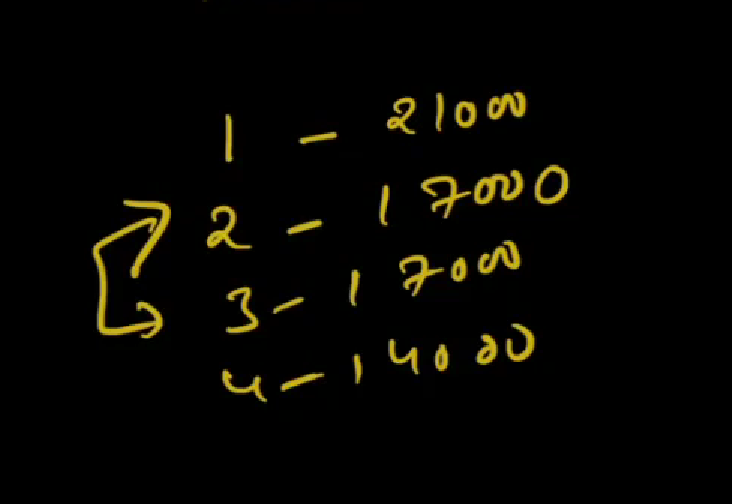 1 - 21000
2 - 17000
3 - 17000
4 - 14000